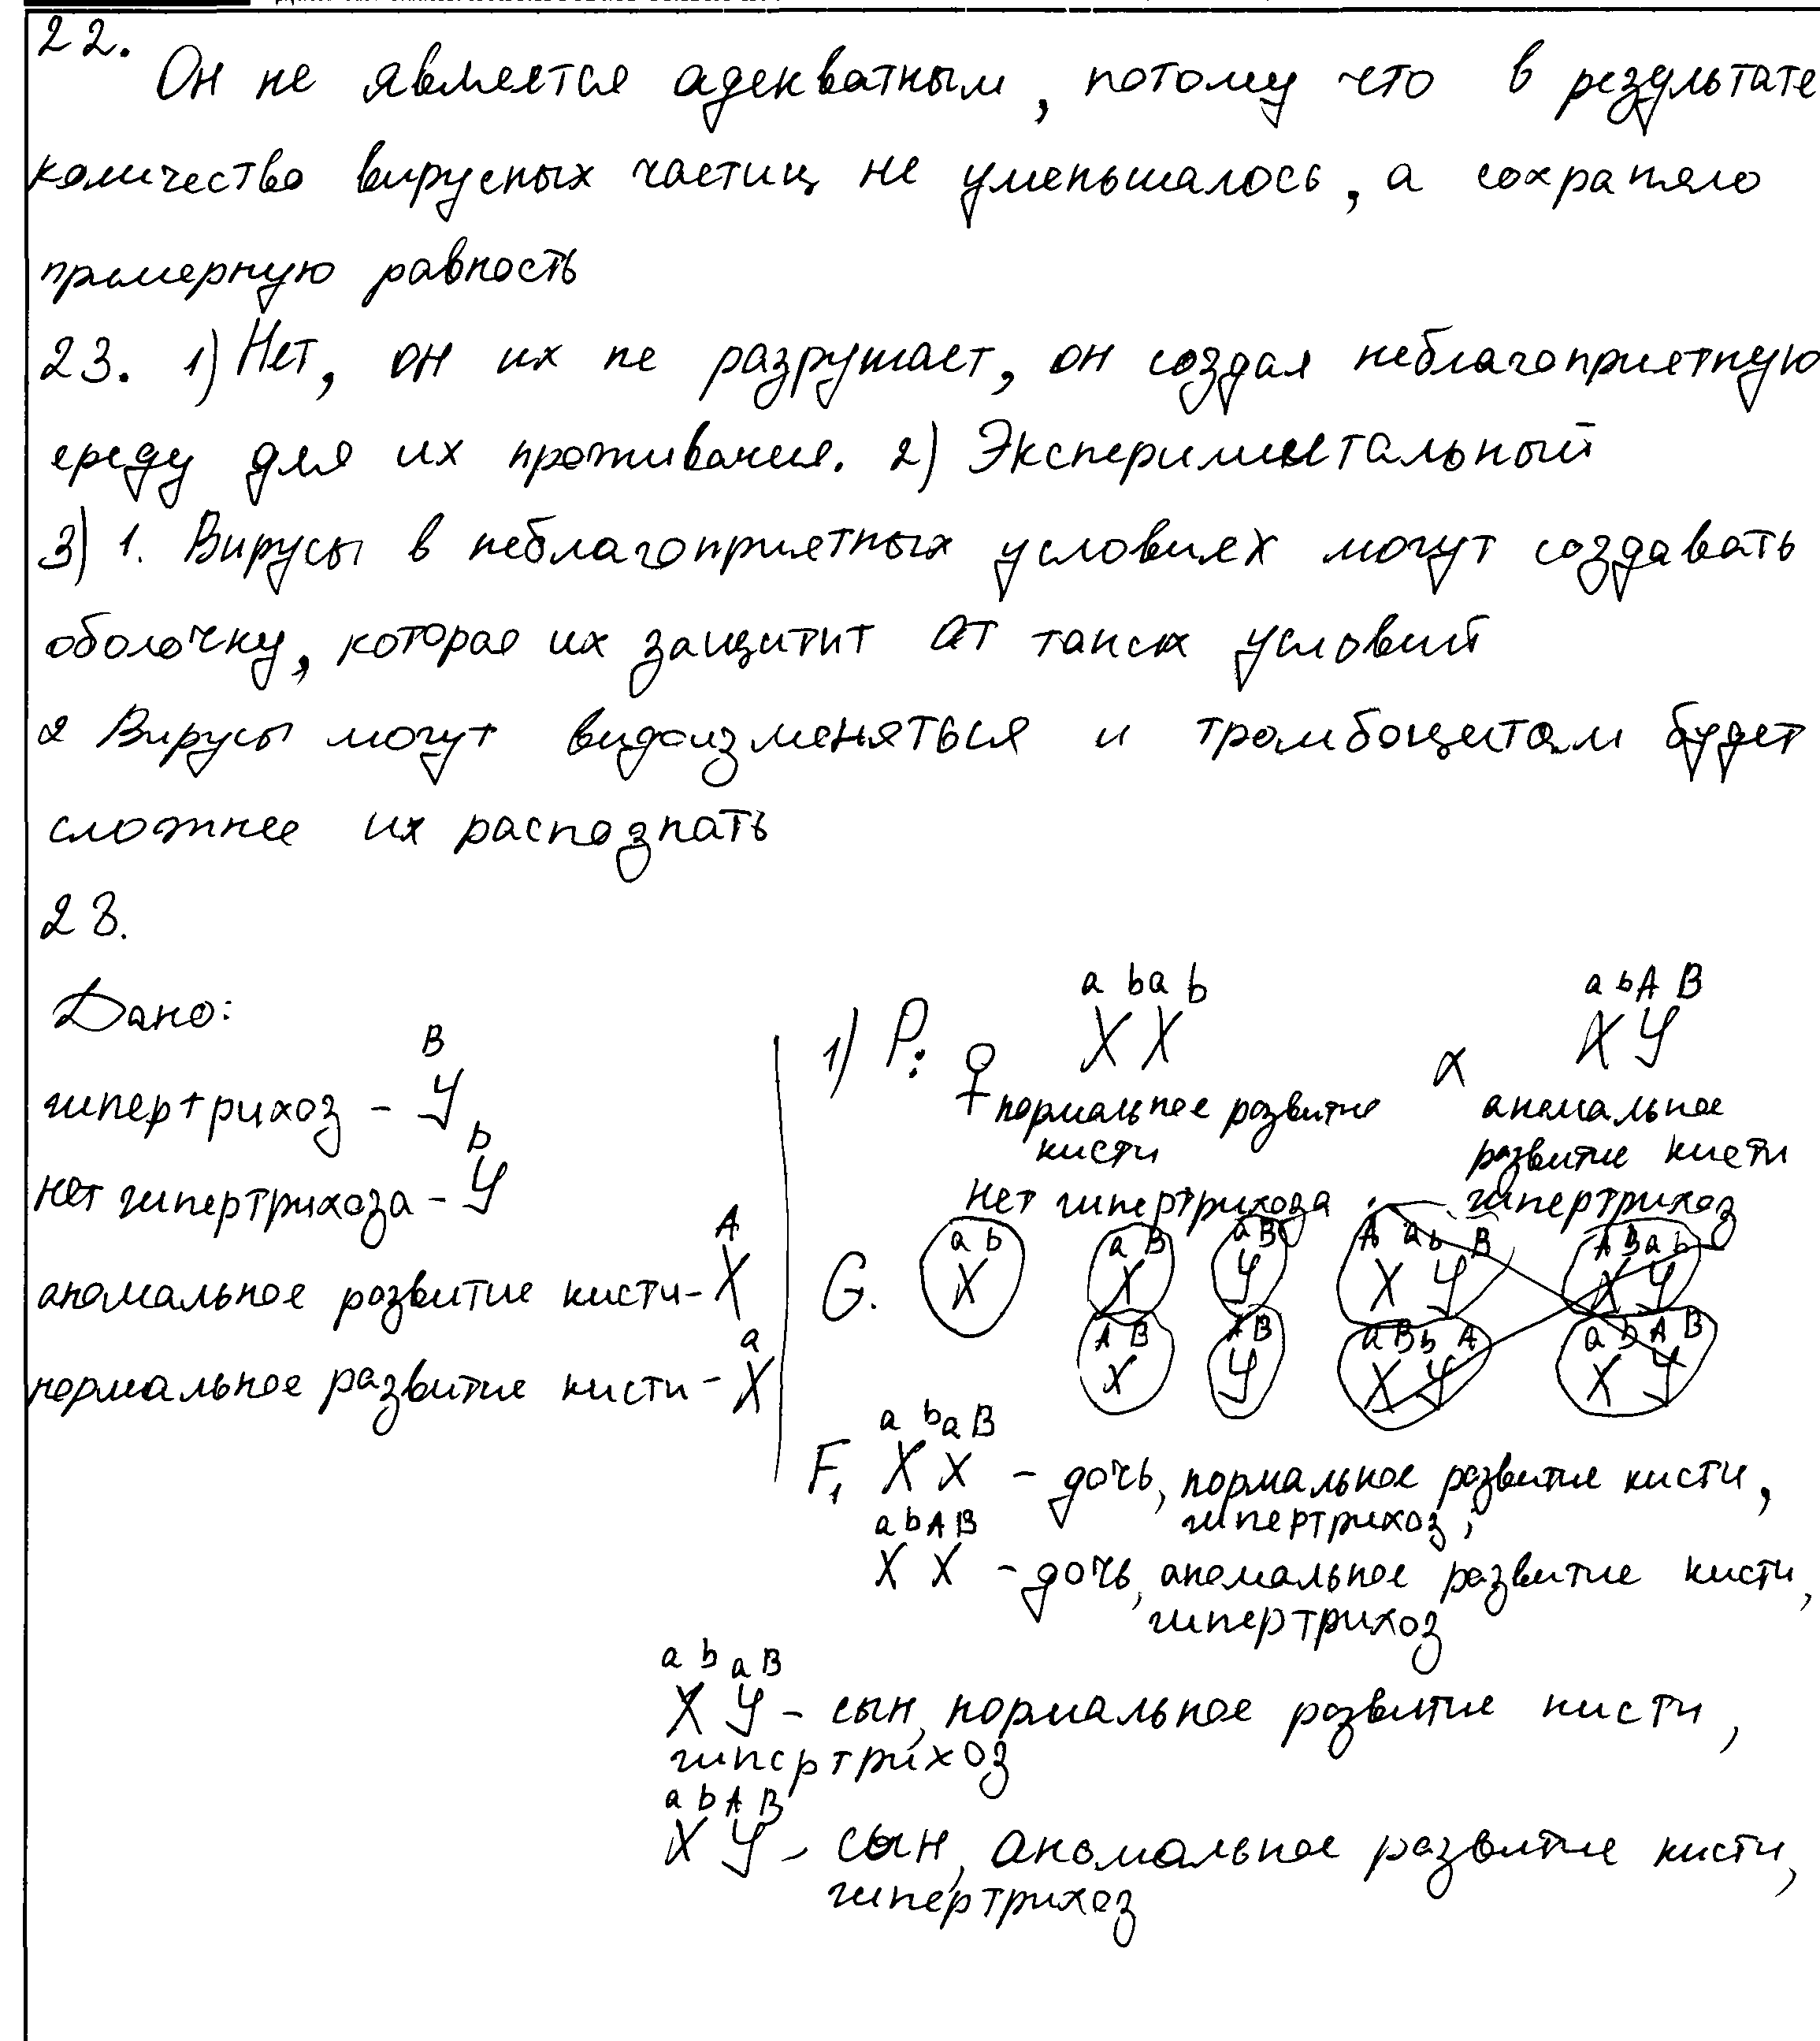 22.
Он не является адекватным, потому что в результате
количество вирусных частиц не уменьшалось, а сохраняло
примерную равность
23. 1) Нет, он их не разрушает, он создая неблагоприятную
среду для их проживания. 2) Экспериментальный
3) 1. Вирусы в неблагоприятных условиях могут создавать
оболочку, которая их защитит от таких условий
2 Вирусы могут видоизменяться и тромбоцитам будет
сложнее их распознать
28.
Дано:
B
гипертрихоз - У
b
нет гипертрихоза - У
A
аномальное развитие кисти - X
a
нормальное развитие кисти - X
a b a b a b A B
1) P: ♀ X X x X У
нормальное развитие кисти
нет гипертрихоза
аномальное развитие кисти
гипертрихоз
a b a B a B
G. X X У
A B A B
X У
a b a B
F1 X X - дочь, нормальное развитие кисти,
гипертрихоз;
a b A B
X X - дочь, аномальное развитие кисти,
гипертрихоз
a b a B
X У - сын, нормальное развитие кисти,
гипертрихоз
a b A B
X У - сын, аномальное развитие кисти,
гипертрихоз